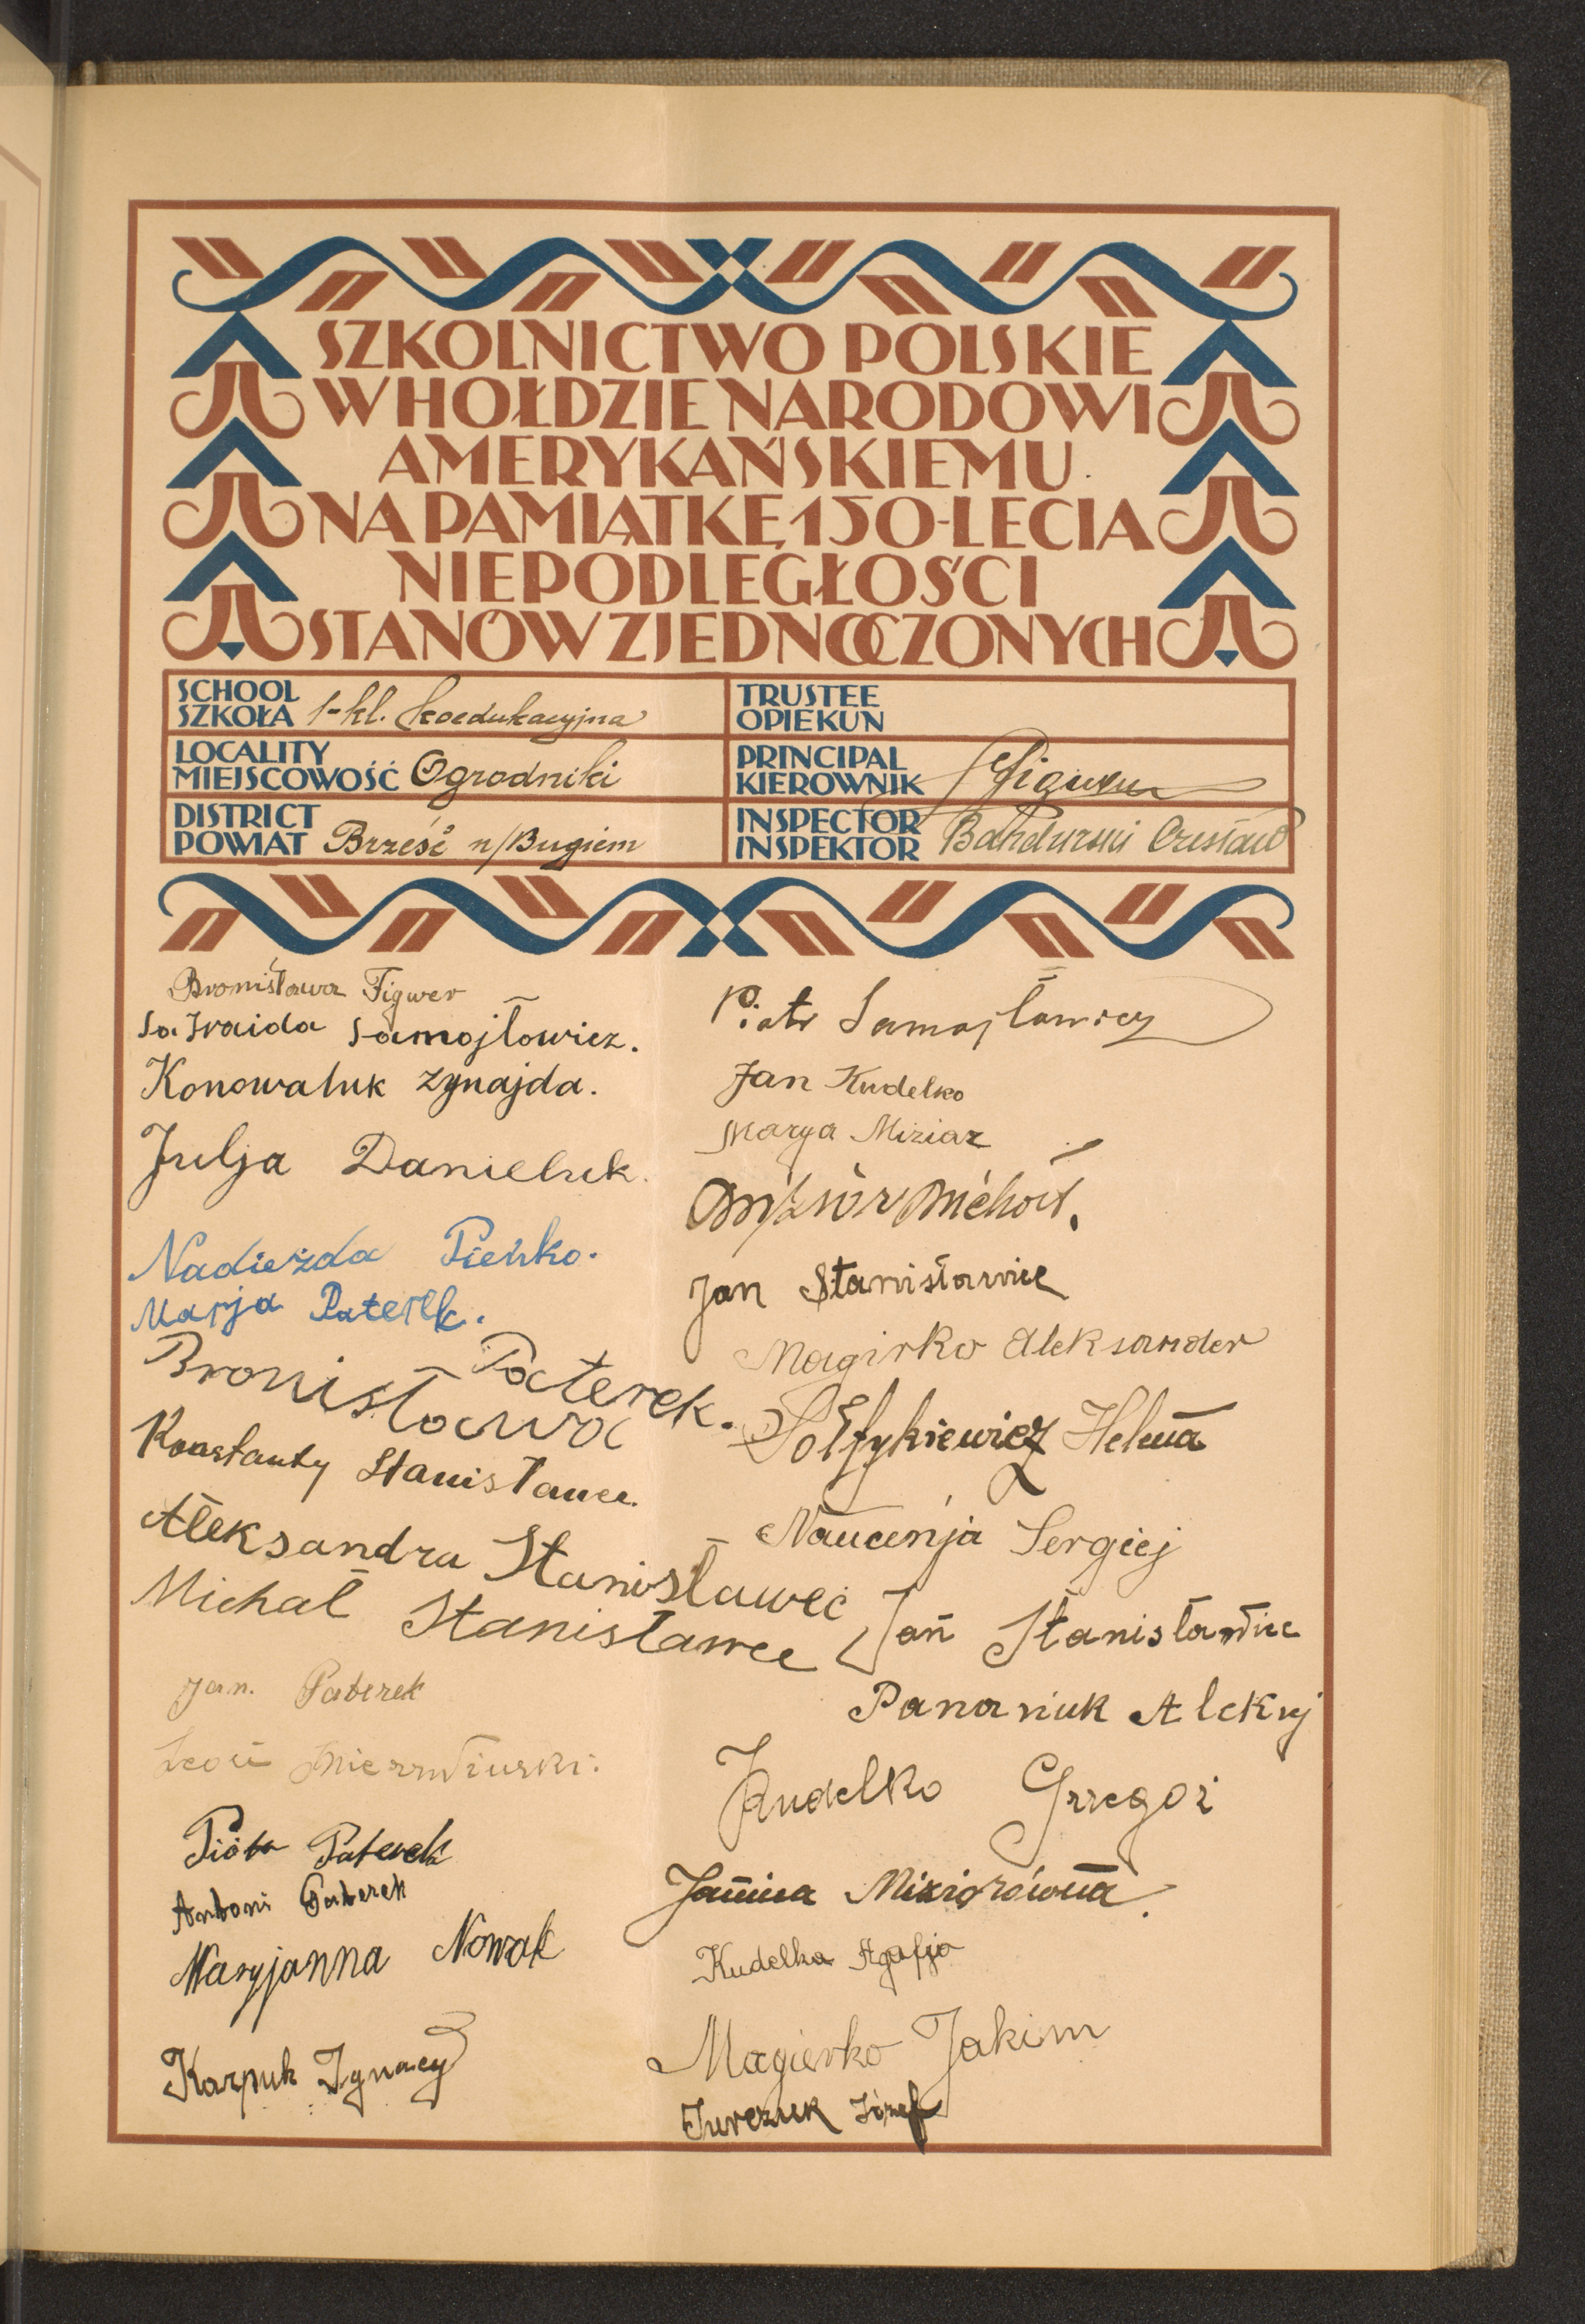 SZKOLNICTWO POLSKIE
W HOŁDZIE NARODOWI
AMERYKAŃSKIEMU
NA PAMIĄTKĘ 150-LECIA
NIEPODLEGŁOŚCI
STANÓW ZJEDNOCZONYCH
SCHOOL
SZKOŁA 1-kl. koedukacyjna
LOCALITY
MIEJSCOWOŚĆ Ogrodniki
DISTRICT
POWIAT Brześć n/Bugiem
TRUSTEE
OPIEKUN
PRINCIPAL
KIEROWNIK Figwer
INSPECTOR
INSPEKTOR Bandurski Czesław
Bronisława Figwer
Samojłowicz.
Konowaluk Zynajda.
Julja Danieluk.
Nadieżda Pieńko.
Marja Paterek.
Bronisława Paterek.
Konstanty Stanisławec.
Aleksandra Stanisławec
Michał Stanisławec
Jan. Paterek
Piotr Paterek
Antoni Paterek
Maryjanna Nowak
Karpuk Ignacy
Piotr Samojłowicz
Jan Kudelko
Marya Miziar
Jan Stanisławiec
Magirko Aleksander
Sołtykiewicz Helena
Sergiej
Jan Stanisławiec
Panasiuk Aleksy
Kudelko Grzegoż
Janina Miziorówna.
Kudelka Agafja
Magierko Jakim
Jurczuk Józef